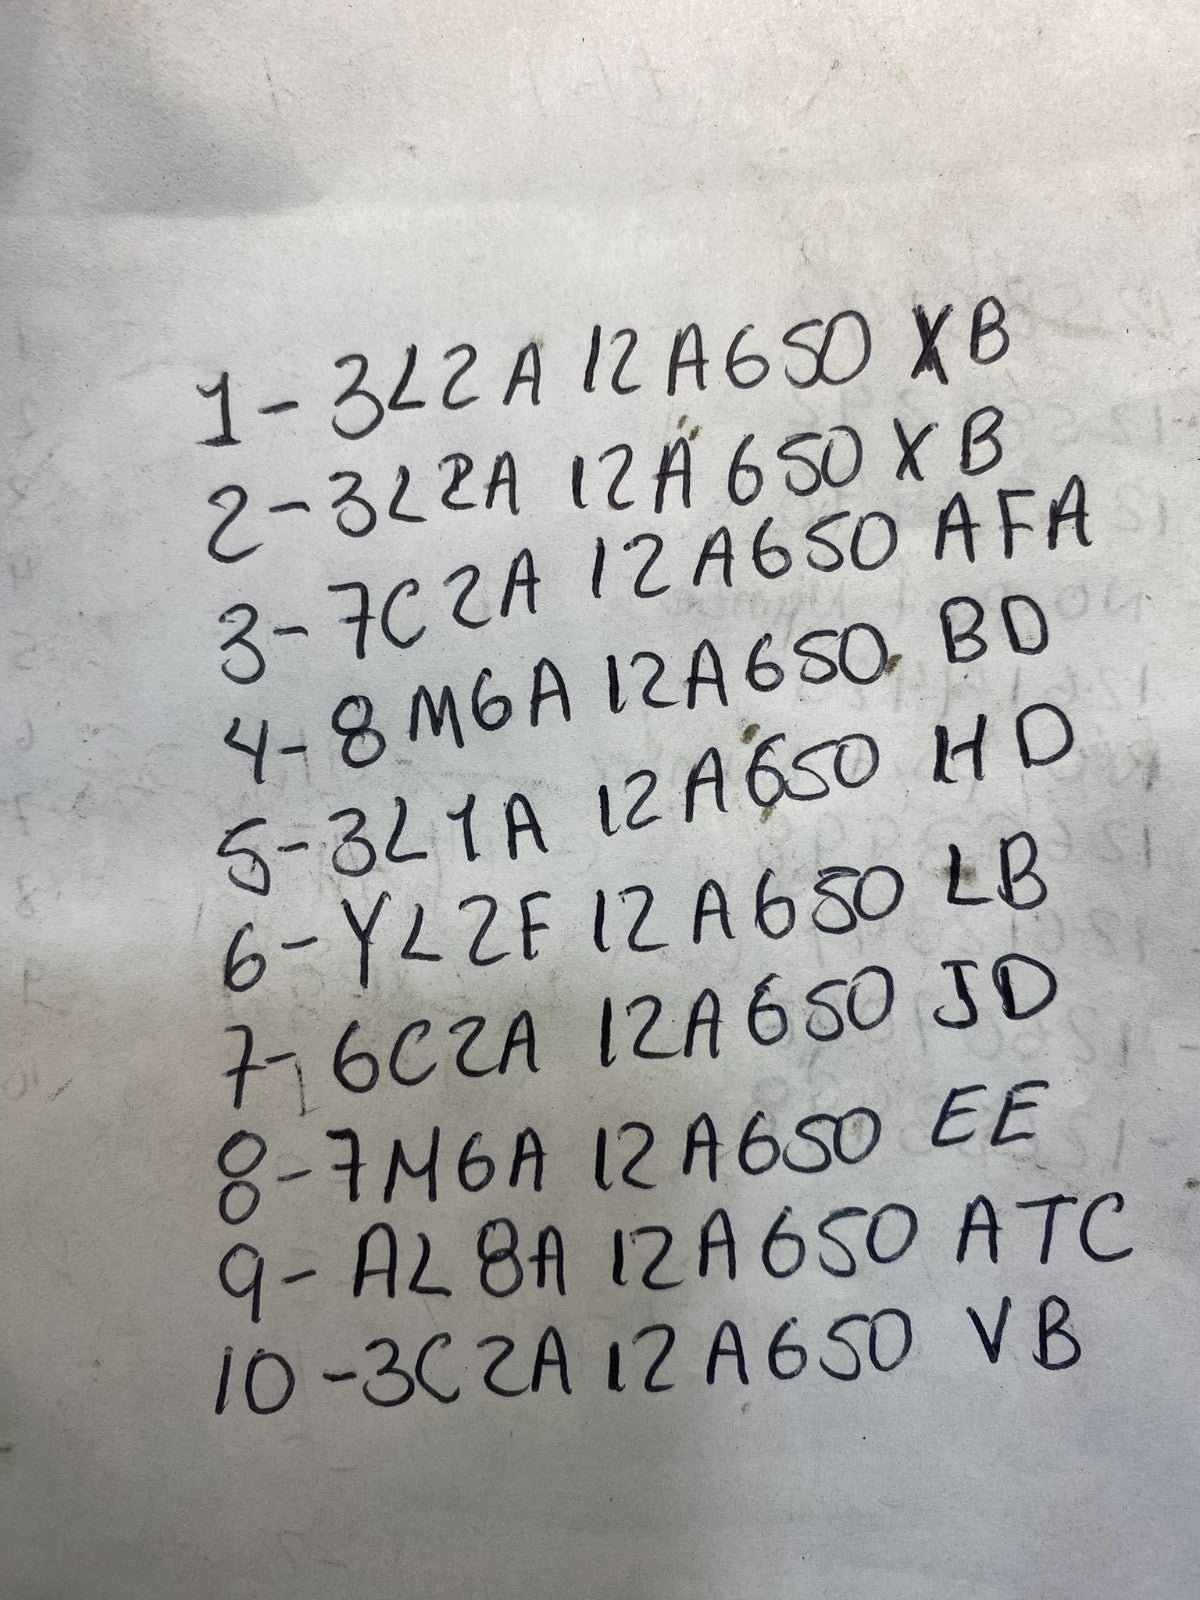 1- 3L2A 12A650 XB
2- 3L2A 12A650 XB
3- 7C2A 12A650 AFA
4- 8M6A 12A650 BD
5- 3L1A 12A650 HD
6- YL2F 12A650 LB
7- 6C2A 12A650 JD
8- 7M6A 12A650 EE
9- AL8A 12A650 ATC
10-3C2A 12A650 VB